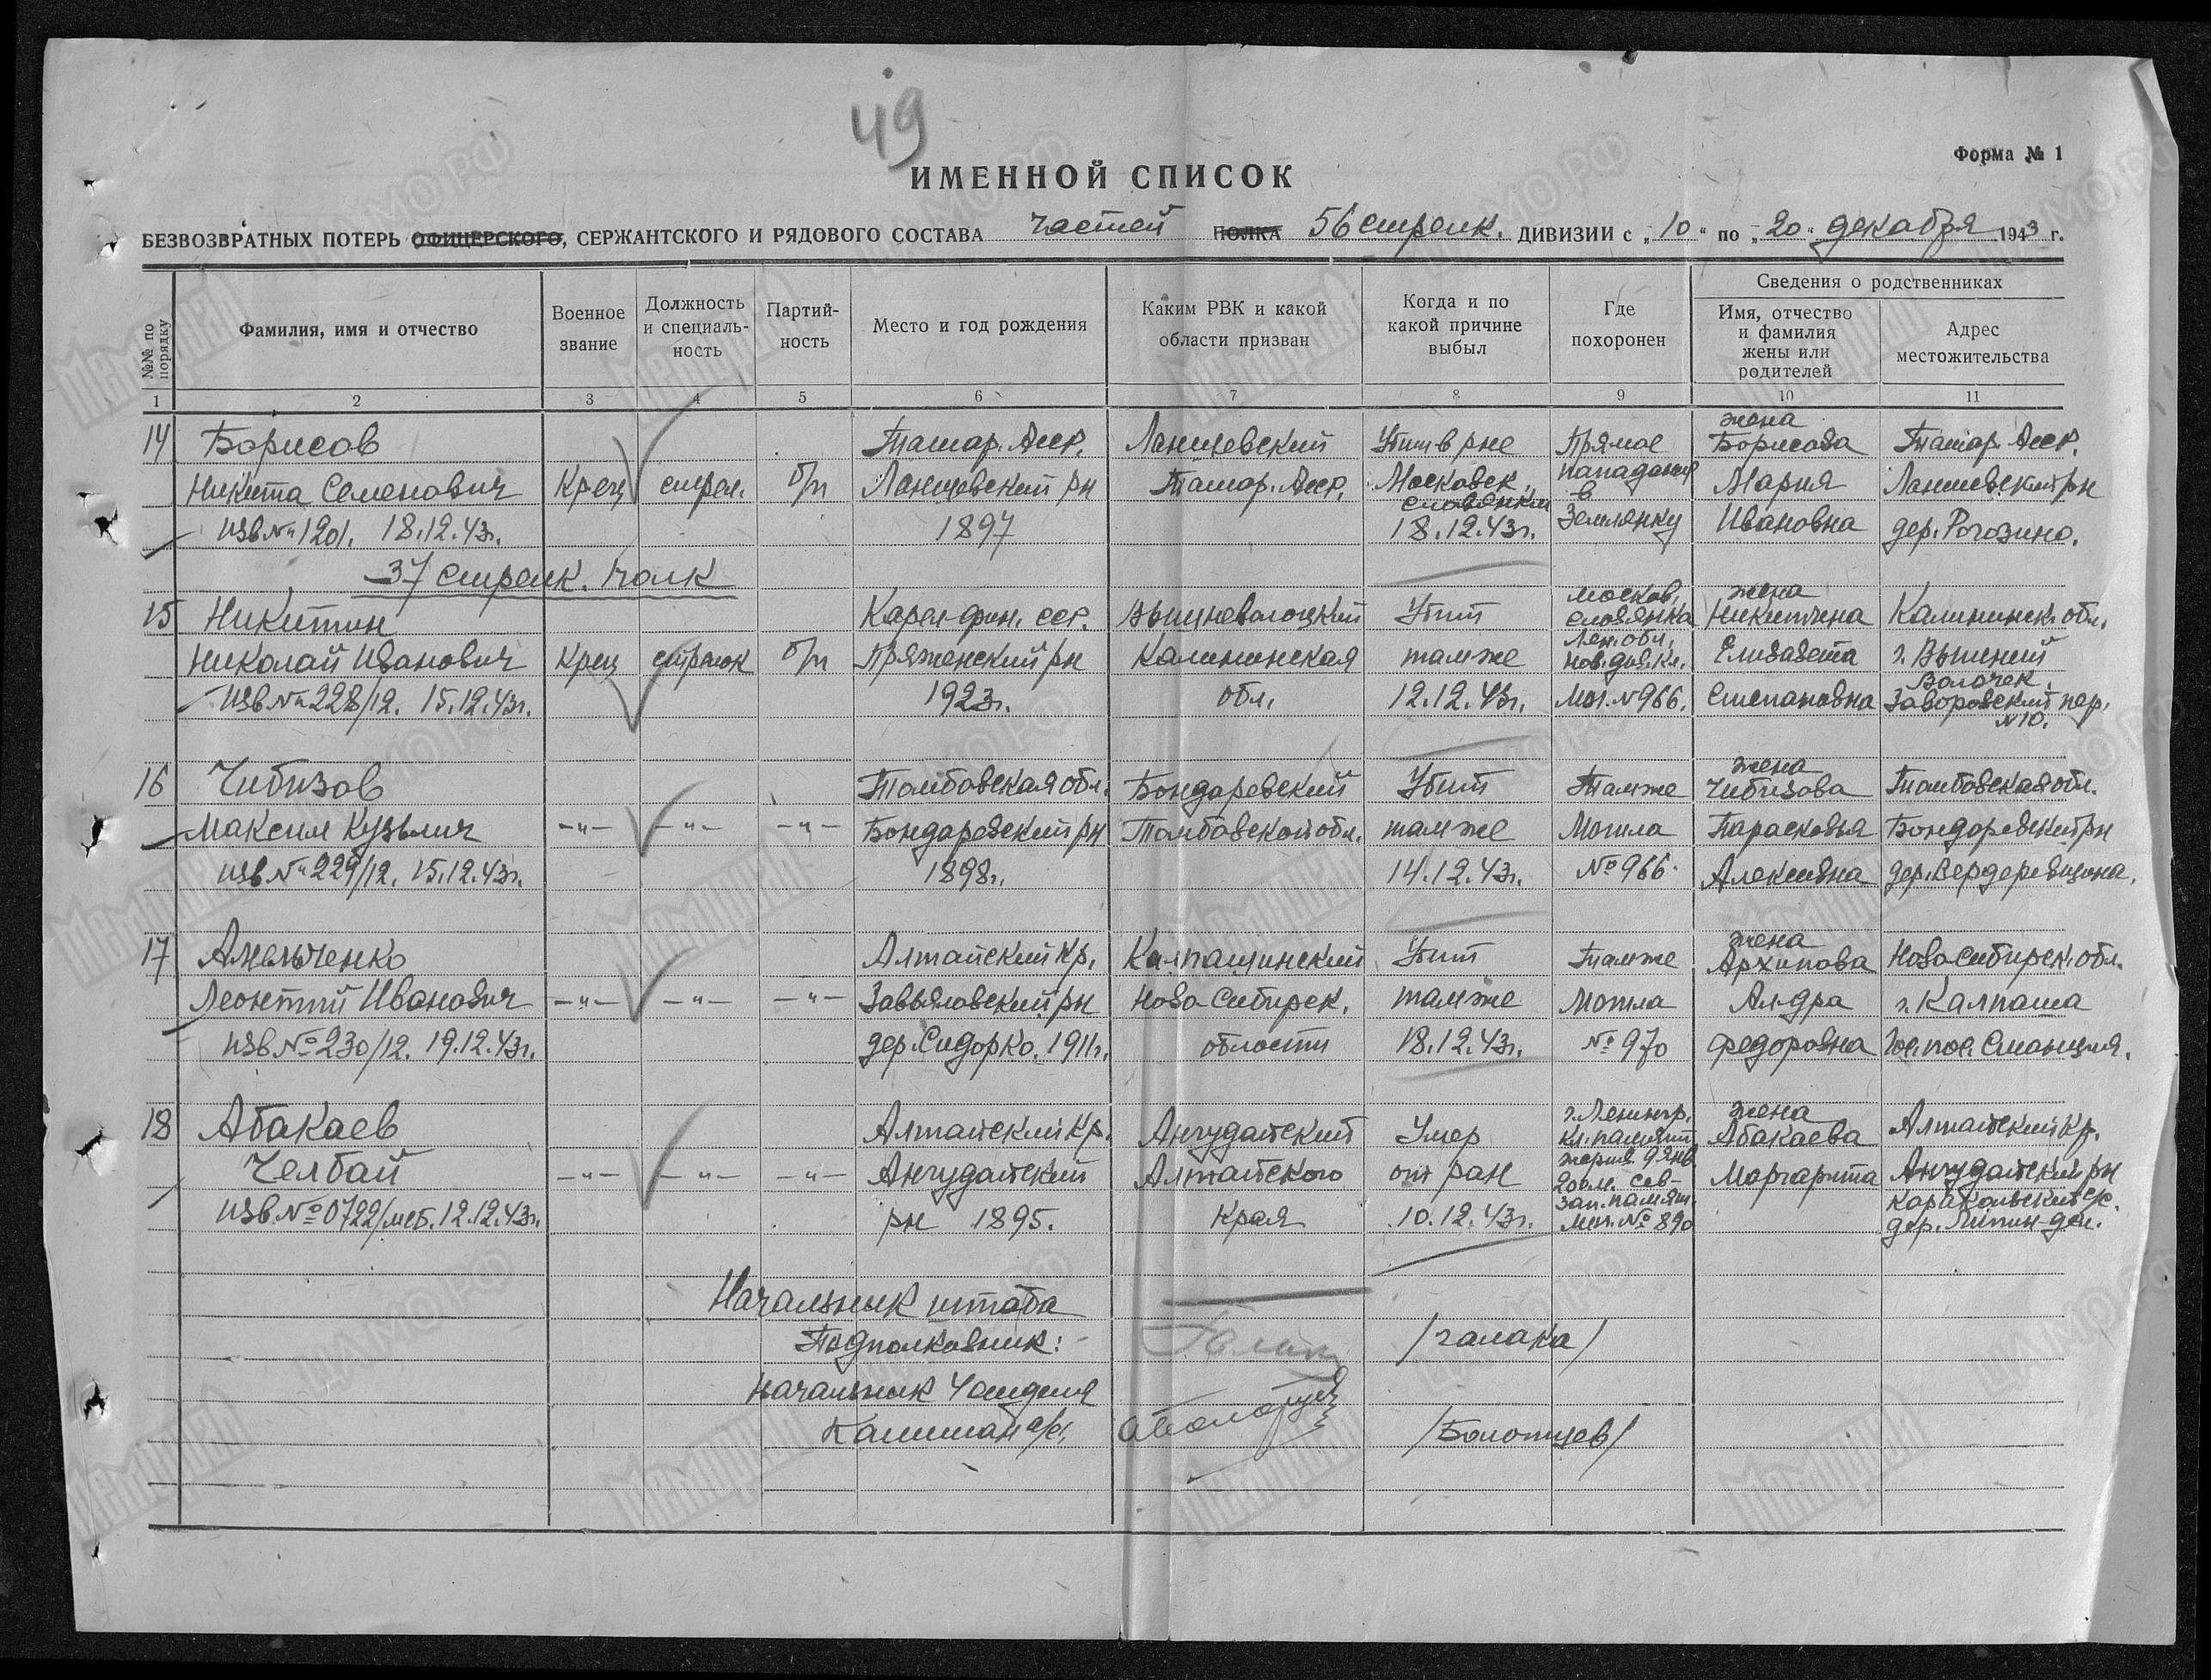 49
Форма № 1
ИМЕННОЙ СПИСОК
БЕЗВОЗВРАТНЫХ ПОТЕРЬ ОФИЦЕРСКОГО, СЕРЖАНТСКОГО И РЯДОВОГО СОСТАВА частей ПОЛКА 56 стрелк. ДИВИЗИИ с „10" по „20" декабря 1943 г.
№№ по порядку
Фамилия, имя и отчество
Военное звание
Должность и специаль-ность
Партий-ность
Место и год рождения
Каким РВК и какой области призван
Когда и по какой причине выбыл
Где похоронен
Сведения о родственниках
Имя, отчество и фамилия жены или родителей
Адрес местожительства
1 2 3 4 5 6 7 8 9 10 11
жена
14 Борисов Татар. Асср. Лаишевский Убит в рне Прямое Борисова Татар. Асср.
Никита Семенович Кр-ец стрел. б/п Лаишевский рн Татар. Асср. Московск. попадания в Мария Лаишевский рн
Славянки
изв № 1201. 18.12.43г. 1897 18.12.43г. Землянку Ивановна дер. Рогозино.
37 стрелк. полк
жена
15 Никитин Карел-фин. сср. Вышневолоцкий Убит Москов. Славянка Никитина Калининск. обл.
Николай Иванович Кр-ец стрелок б/п Пряженский рн Калининская там же Лен. обл. Елизавета г. Вышний Волочек.
изв № 228/12. 15.12.43г. 1923г. обл. 12.12.43г. Мог. № 966. Степановна Заворовский пер. № 10.
жена
16 Чибизов Тамбовская обл. Бондаревский Убит Там же Чибизова Тамбовская обл.
Максим Кузьмич —"— —"— —"— Бондаревский рн Тамбовской обл. там же Могила Парасковья Бондаревский рн
изв № 229/12. 15.12.43г. 1898г. 14.12.43г. № 966. Алексеевна дер. Вердеревщина.
жена
17 Амельченко Алтайский кр. Калпашинский Убит Там же Архипова Новосибирск. обл.
Леонтий Иванович —"— —"— —"— Завьяловский рн Ново-Сибирск. там же Могила Ал-дра г. Калпаша
изв № 230/12. 19.12.43г. дер. Сидорко. 1911г. области 18.12.43г. № 970 Федоровна Гос. пос. Станция.
жена
18 Абакаев Алтайский кр. Ангудайский Умер г. Ленингр. Абакаева Алтайский кр.
Челбай —"— —"— —"— Ангудайский Алтайского от ран кл. памяти жертв 9 янв. Маргарита Ангудайский рн
200 м. сев-зап. памят.
изв. № 0722/мсб. 12.12.43г. рн 1895. Края 10.12.43г. мог. № 890 Каракольский с/с.
Начальник штаба
Подполковник: /Галака/
Начальник 4 отделя
Капитан а/с. /Болотцев/